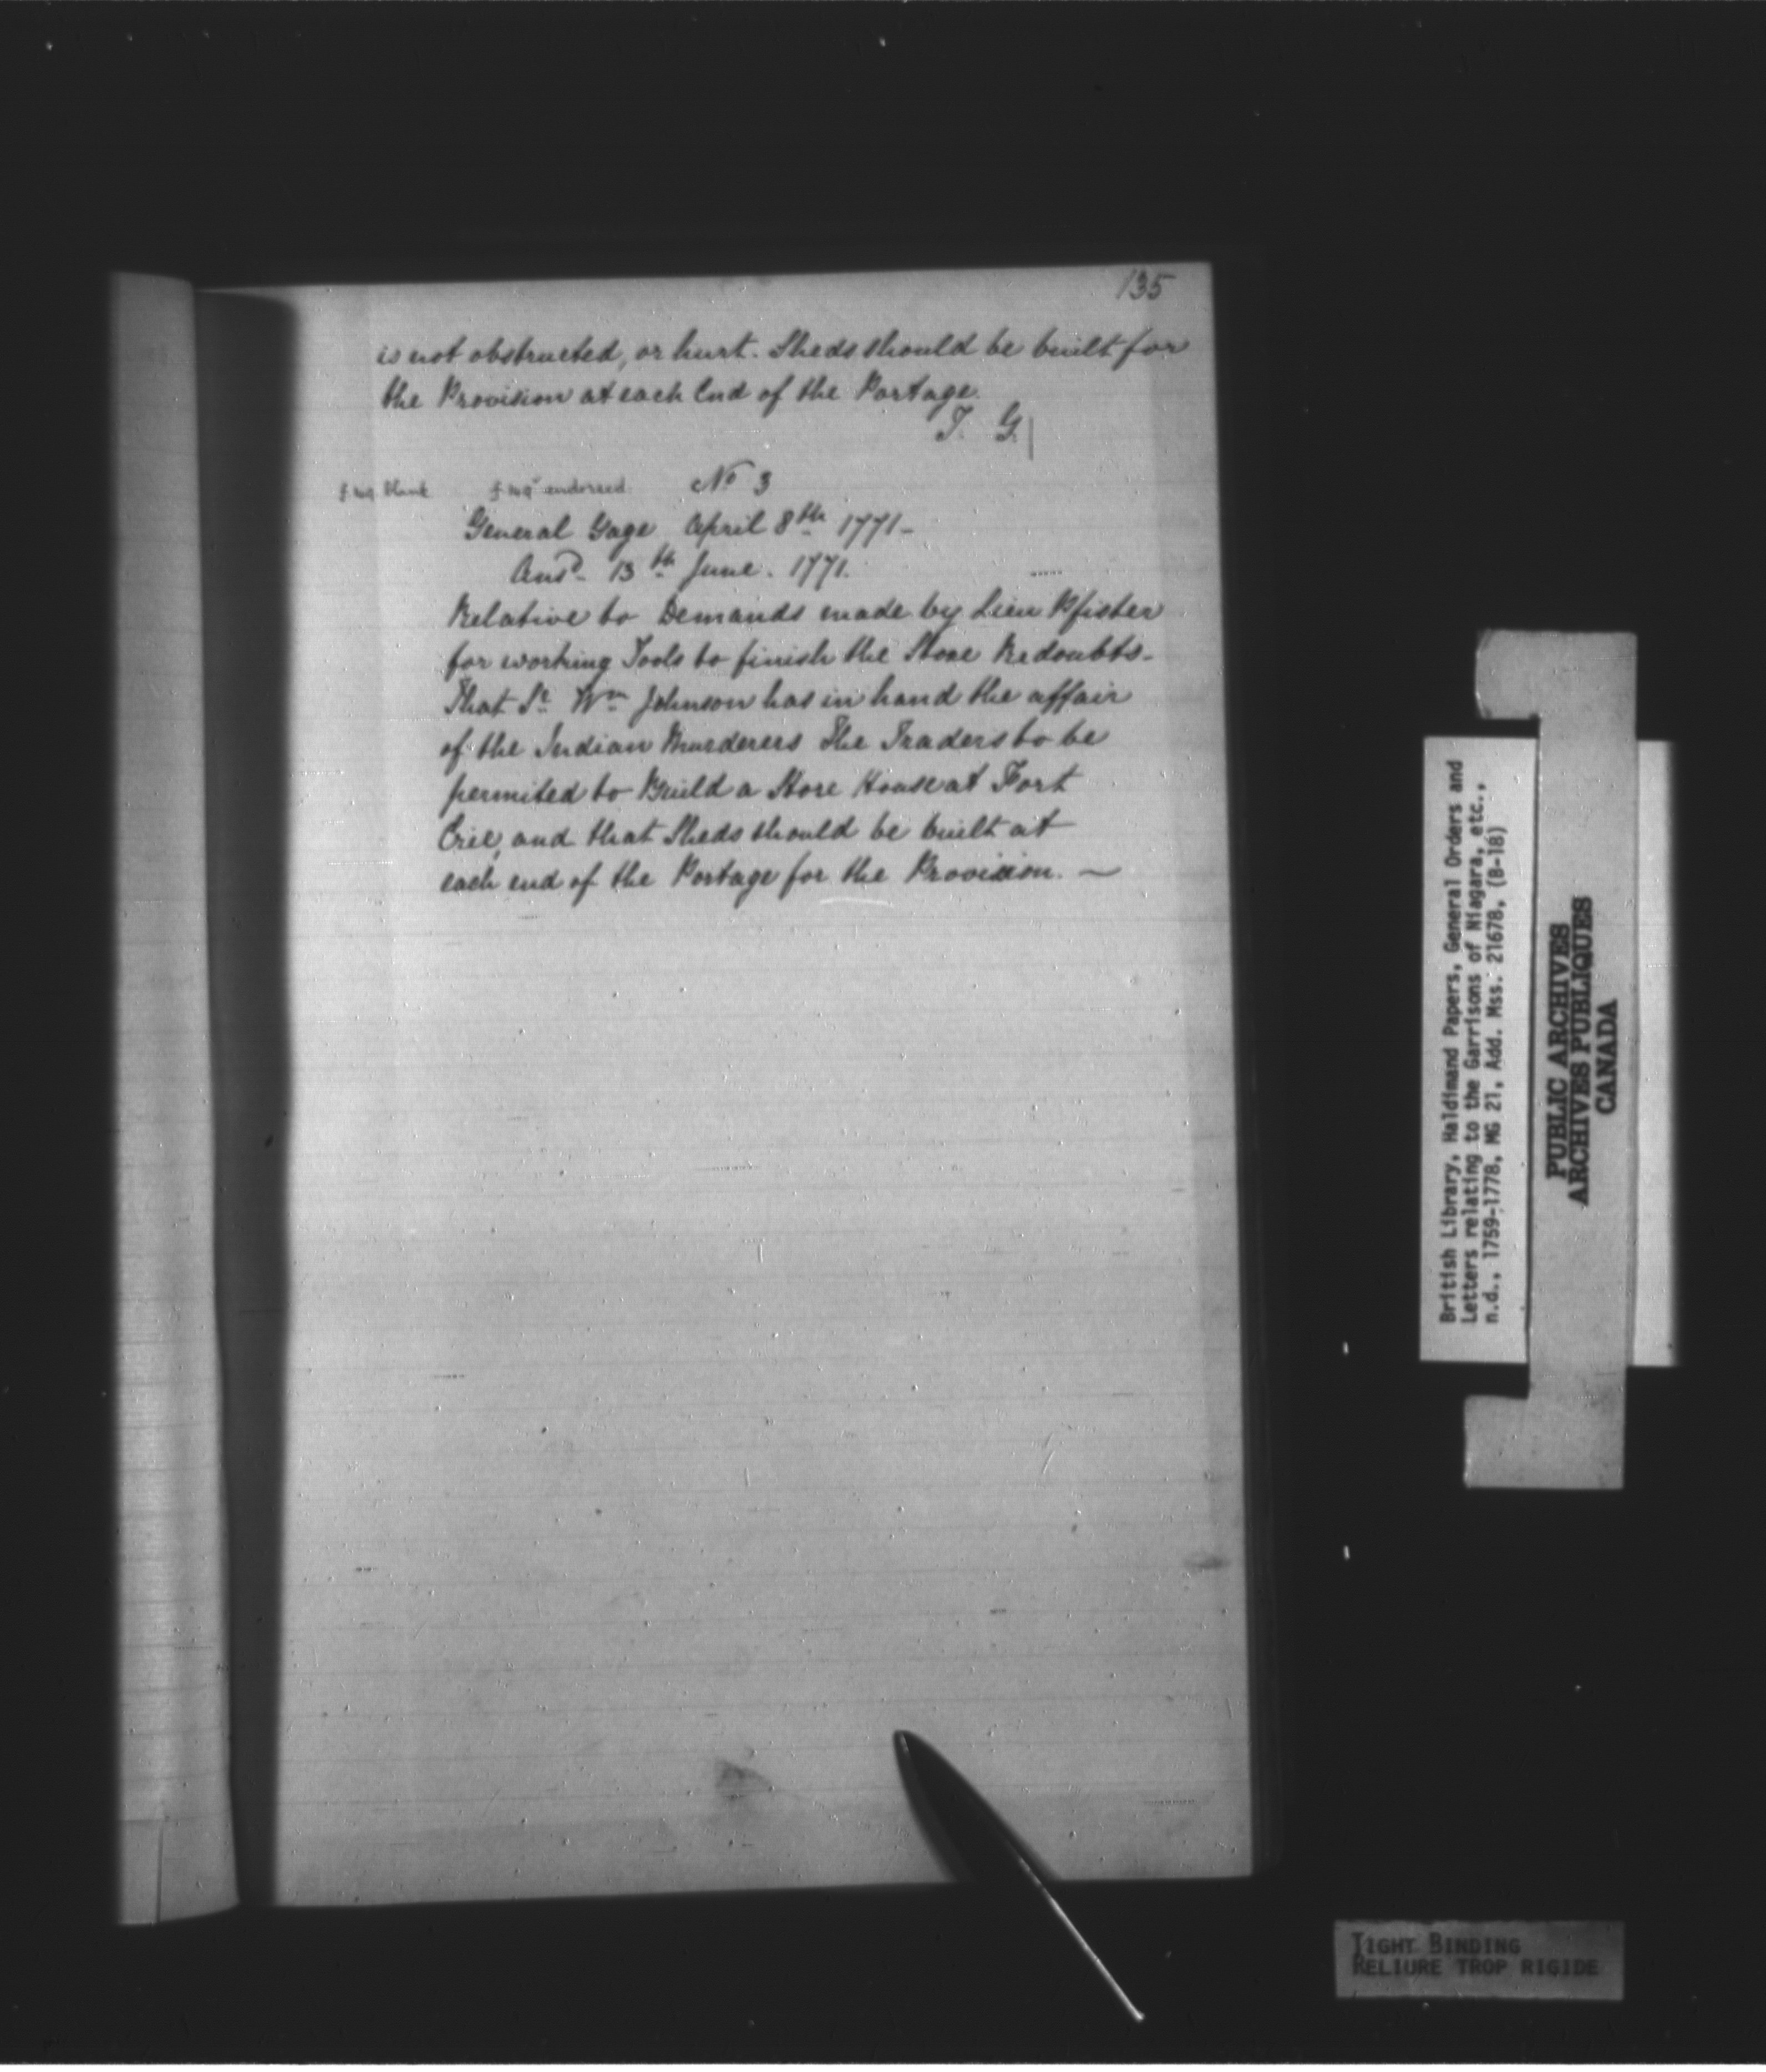 135
is not obstructed, or hurt. Sheds should be built for
the Provision at each End of the Portage.
T. G.
blank endorsed No 3
General Gage April 8th 1771-
Ansd. 13th June. 1771.
Relative to Demands made by Lieu Pfister
for working Tools to finish the Stone Redoubts-
That Sr Wm Johnson has in hand the affair
of the Indian Murderers The Traders to be
permited to Build a Store House at Fort
Erie, and that Sheds should be built at
each end of the Portage for the Provision. ~
British Library, Haldimand Papers, General Orders and
Letters relating to the Garrisons of Niagara, etc.,
n.d., 1759-1778, MG 21, Add. Mss. 21678, (B-18)
PUBLIC ARCHIVES
ARCHIVES PUBLIQUES
CANADA
TIGHT BINDING
RELIURE TROP RIGIDE